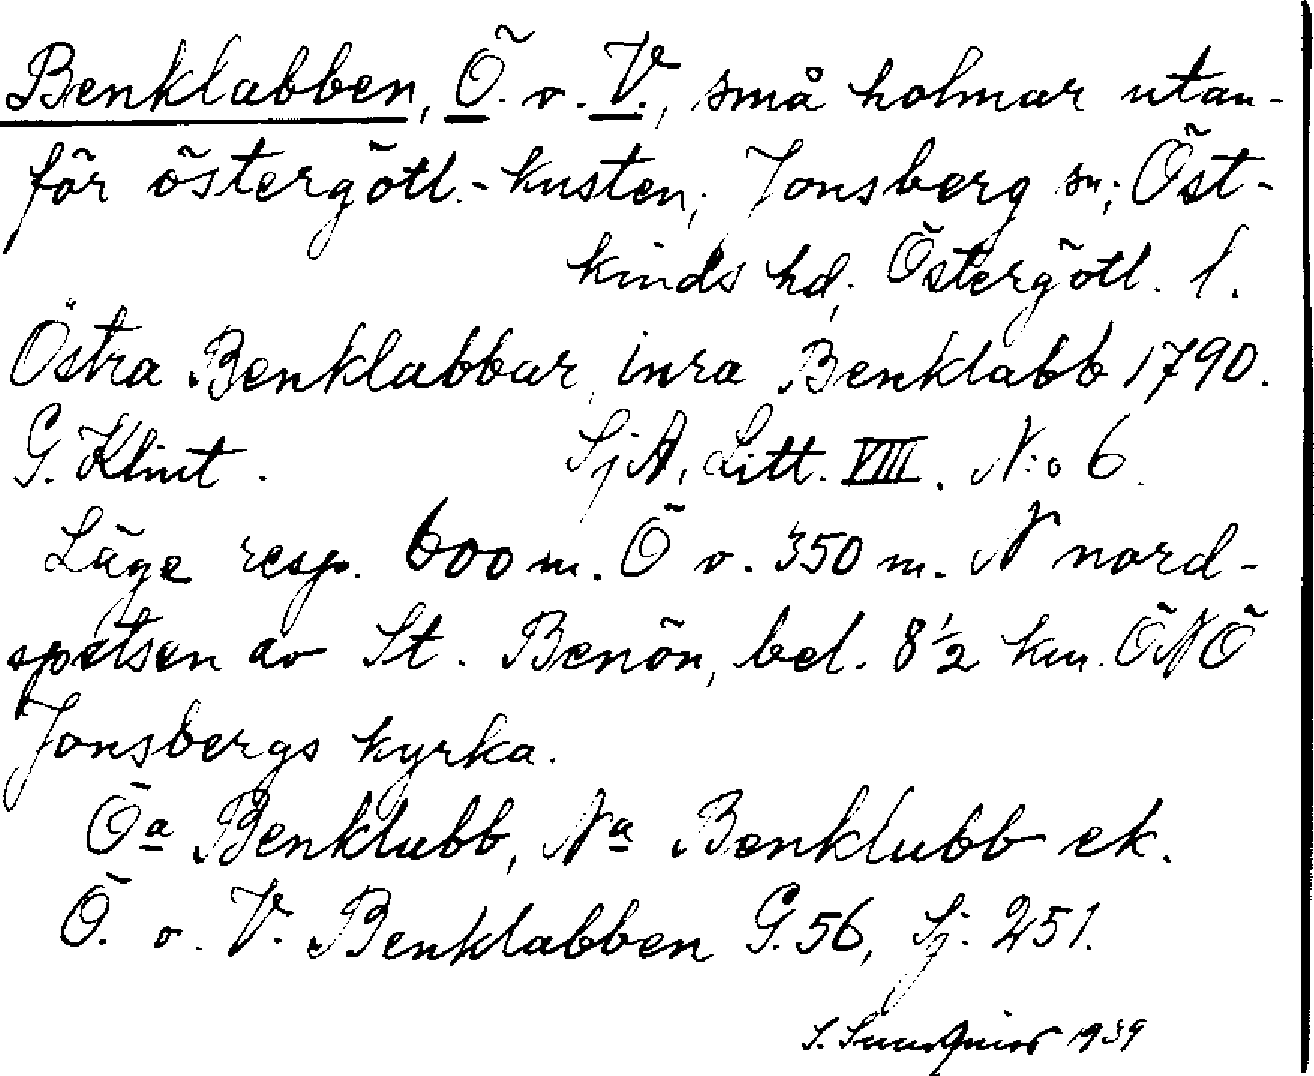 Benklabben, Ö. o. V., små holmar utan-
för östergötl.-kusten; Jonsberg sn; Öst-
kinds hd, Östergötl. l.
Östra Benklabbar, inra Benklabb 1790.
G. Klint. SjA, Litt. VIII. N:o 6.
Läge resp. 600 m. Ö o. 350 m. N nord-
spetsen av St. Benön, bel. 8½ km. ÖNÖ
Jonsbergs kyrka.
Öa Benklubb, Na Benklubb ek.
Ö. o. V. Benklabben G. 56, Sj. 251.
S. 1939